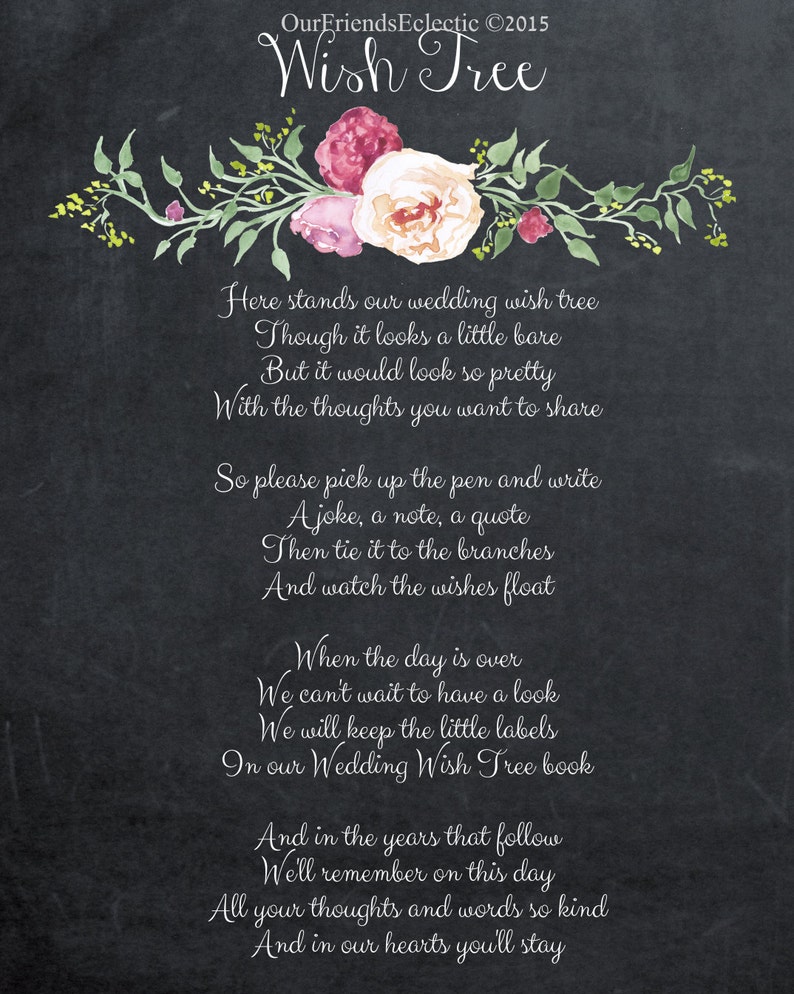 OurFriendsEclectic ©2015
Wish Tree
Here stands our wedding wish tree
Though it looks a little bare
But it would look so pretty
With the thoughts you want to share
So please pick up the pen and write
A joke, a note, a quote
Then tie it to the branches
And watch the wishes float
When the day is over
We can't wait to have a look
We will keep the little labels
In our Wedding Wish Tree book
And in the years that follow
We'll remember on this day
All your thoughts and words so kind
And in our hearts you'll stay